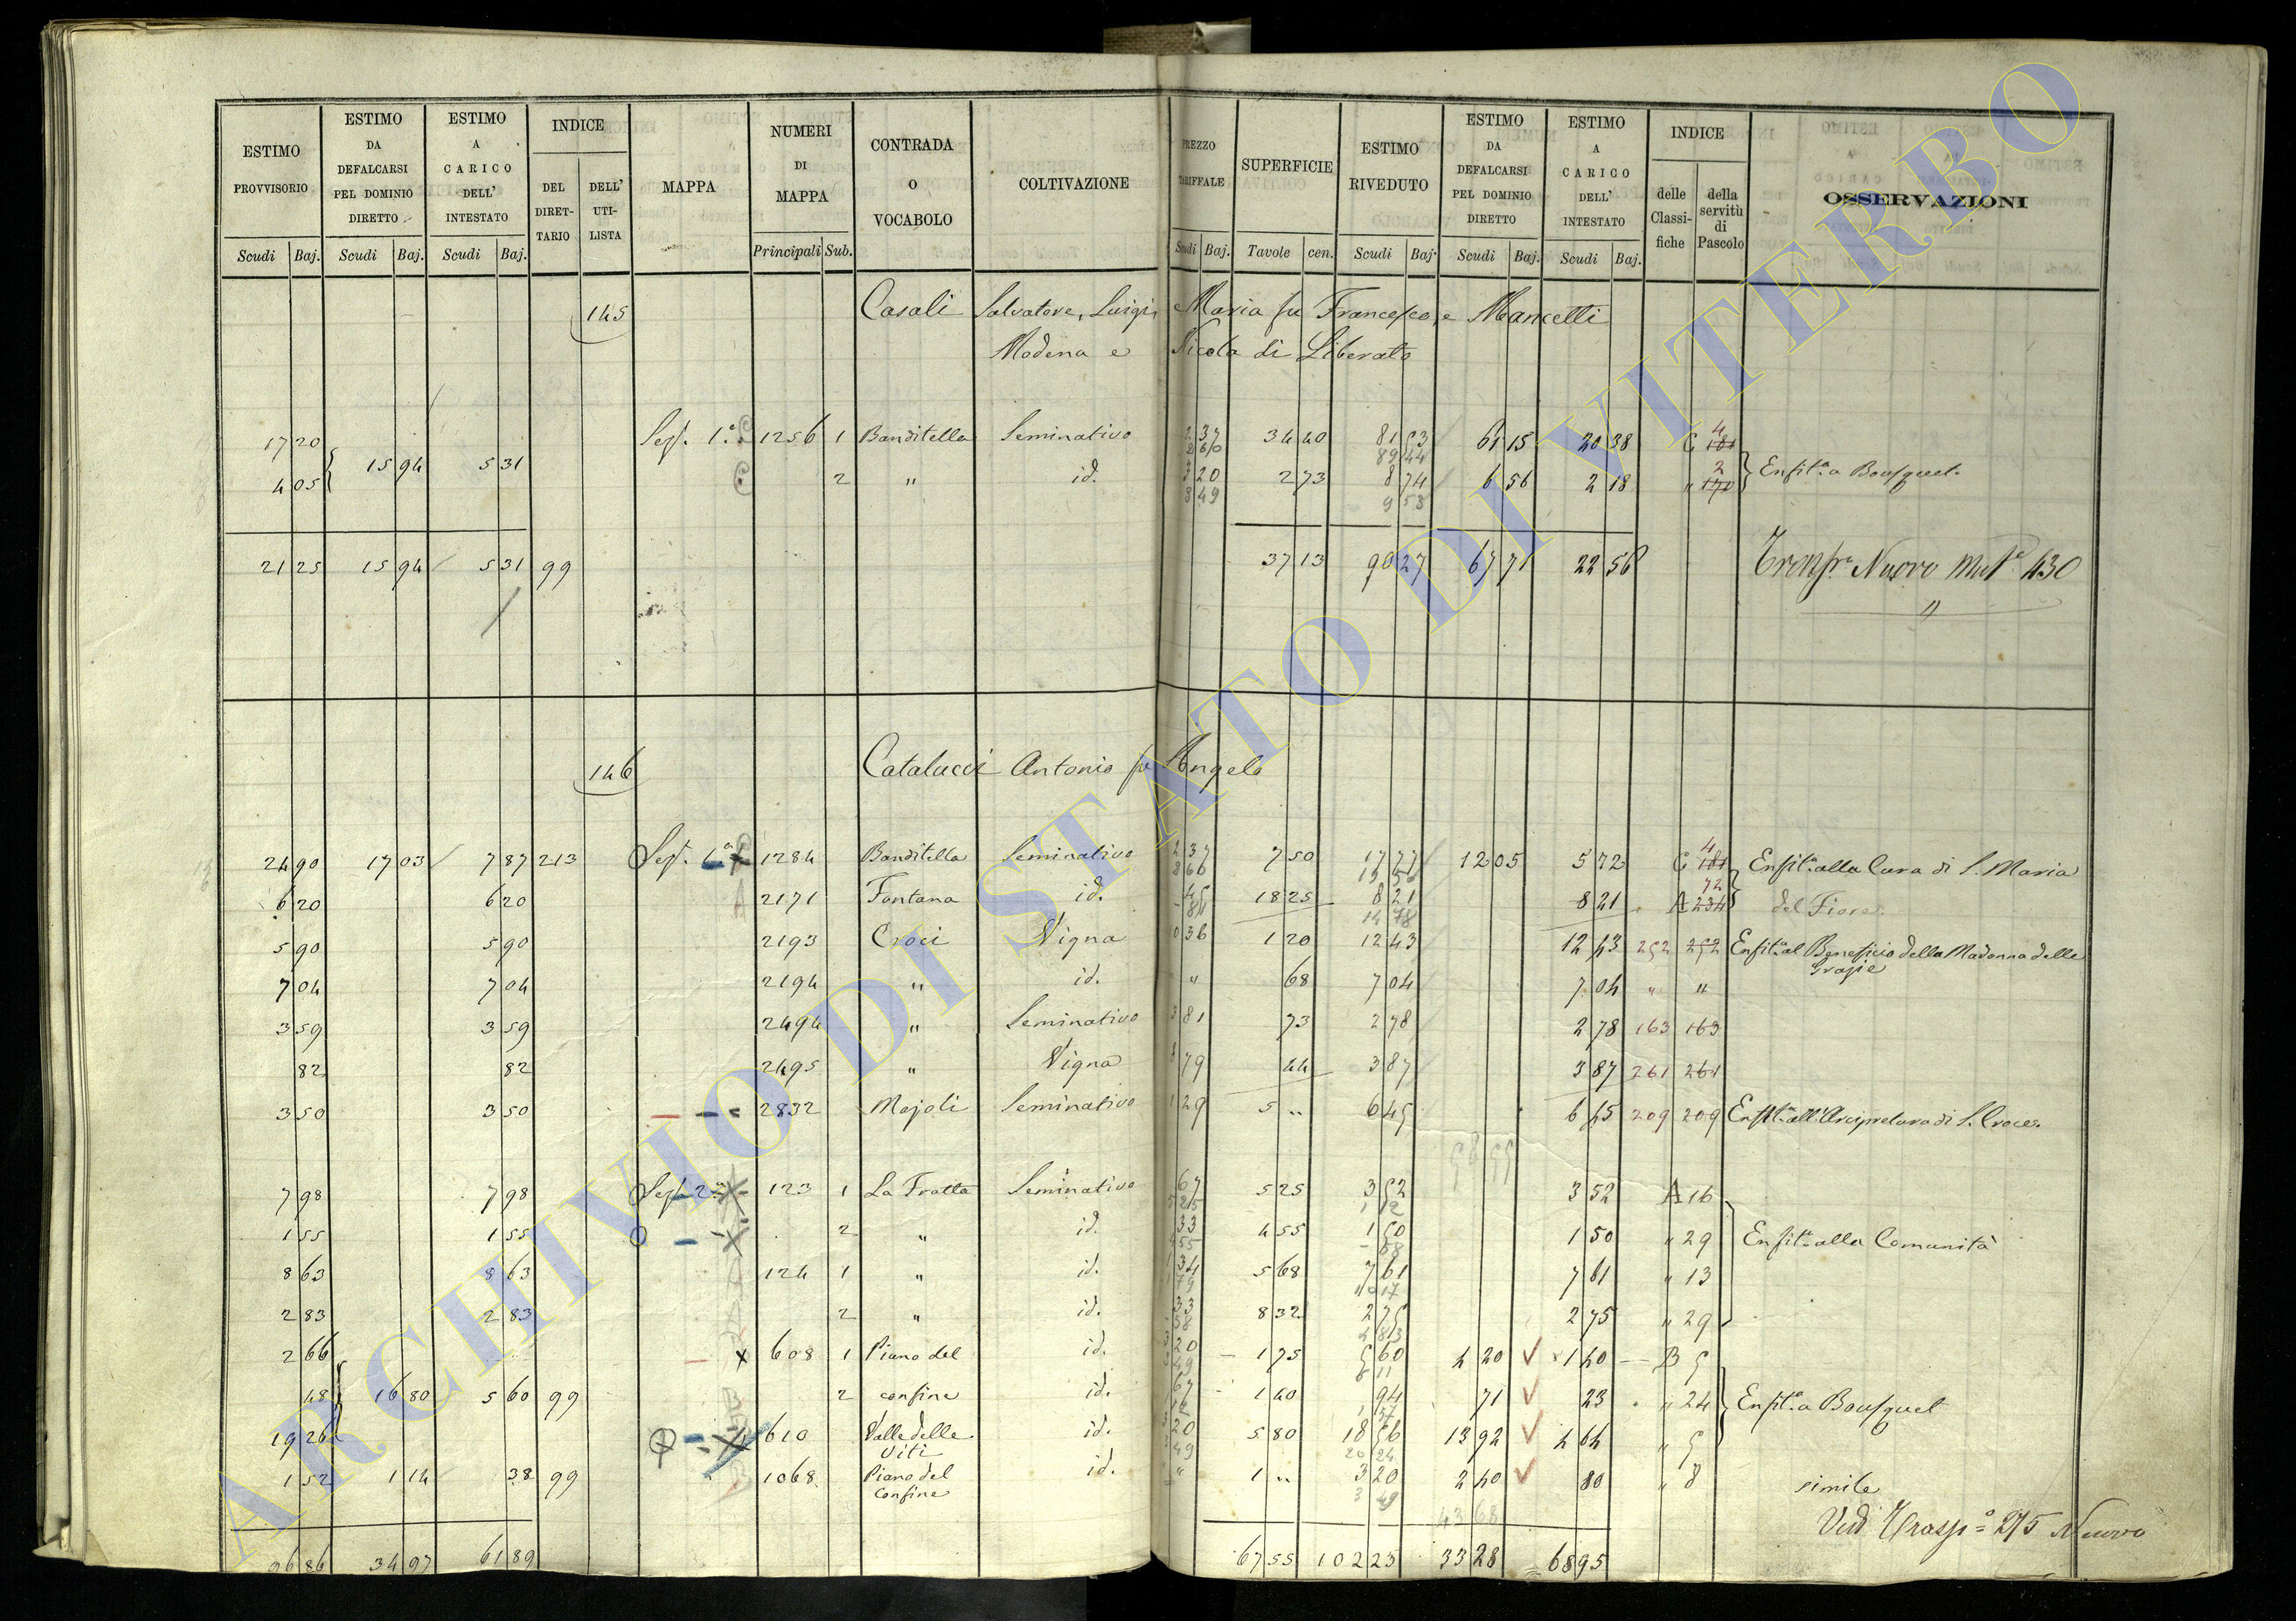 ESTIMO PROVVISORIO | ESTIMO DA DEFALCARSI PEL DOMINIO DIRETTO | ESTIMO A CARICO DELL' INTESTATO | INDICE | MAPPA | NUMERI DI MAPPA | CONTRADA O VOCABOLO | COLTIVAZIONE | PREZZO TARIFFALE | SUPERFICIE | ESTIMO RIVEDUTO | ESTIMO DA DEFALCARSI PEL DOMINIO DIRETTO | ESTIMO A CARICO DELL' INTESTATO | INDICE | OSSERVAZIONI
DEL DIRETTARIO | DELL' UTILISTA | delle Classifiche | della servitù di Pascolo
Scudi Baj. | Scudi Baj. | Scudi Baj. | Principali Sub. | Scudi Baj. | Tavole cen. | Scudi Baj. | Scudi Baj. | Scudi Baj.
145 Casali Salvatore, Luigi, Maria fu Francesco, e Mancelli
Modena e Nicola di Liberato
17 20 Sez. 1ª 1256 1 Banditella Seminativo 2 37 34 40 81 53 61 15 20 38 C 4 181
15 94 5 31
4 05 2 " id. 3 20 2 73 8 74 6 56 2 18 " 2 170 Enfit.ª a Bousquet
3 49 9 53
21 25 15 94 5 31 99 37 13 90 27 67 71 22 56 Trasp.º Nuovo 430
146 Catalucci Antonio fu Angelo
24 90 17 03 7 87 213 Sez. 1ª 1284 Banditella Seminativo 2 37 7 50 17 77 12 05 5 72 C 4 181 Enfit.ª alla Cura di S. Maria
6 20 6 20 A 2171 Fontana id. 45 18 25 8 21 8 21 A 72 234 del Fiore
5 90 5 90 2193 Croci Vigna 0 36 1 20 12 43 12 43 252 252 Enfit.ª al Beneficio della Madonna delle
Grazie
7 04 7 04 2194 " id. " 68 7 04 7 04 " "
3 59 3 59 2494 " Seminativo 3 81 73 2 78 2 78 163 163
82 82 2495 " Vigna 8 79 44 3 87 3 87 261 261
3 50 3 50 2832 Majoli Seminativo 1 29 5 " 6 45 6 45 209 209 Enfit.ª all'Arcipretura di S. Croce
7 98 7 98 Sez. 2ª 123 1 La Fratta Seminativo 67 5 25 3 52 3 52 A 16
1 55 1 55 2 " id. 33 4 55 1 50 1 50 " 29 Enfit.ª alla Comunità
8 63 8 63 124 1 " id. 1 34 5 68 7 61 7 61 " 13
2 83 2 83 2 " id. 33 8 32 2 75 2 75 " 29
2 66 608 1 Piano del id. 3 20 1 75 5 60 4 20 1 40 B 5
48 16 80 5 60 99 2 confine id. 67 1 40 94 71 23 " 24 Enfit.ª a Bousquet
19 26 610 Valle delle Viti id. 3 20 5 80 18 56 13 92 4 64 " 5
1 52 1 14 38 99 1068 Piano del Confine id. " 1 " 3 20 2 40 80 " 8 simile
3 49
43 68
Vedi Trasp.º 275 Nuovo
96 86 34 97 61 89 67 55 102 23 33 28 68 95
ARCHIVIO DI STATO DI VITERBO